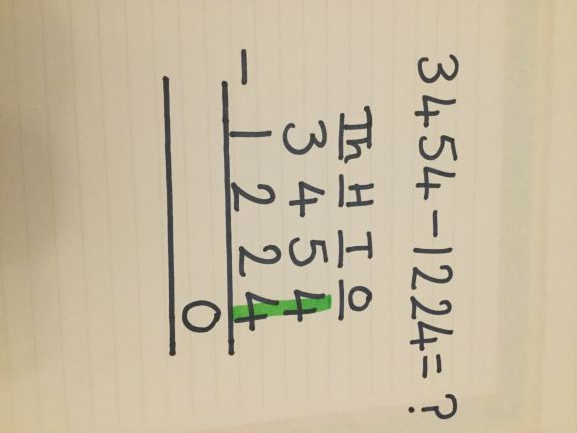 3454-1224=?
Th H T O
3 4 5 4
- 1 2 2 4
0